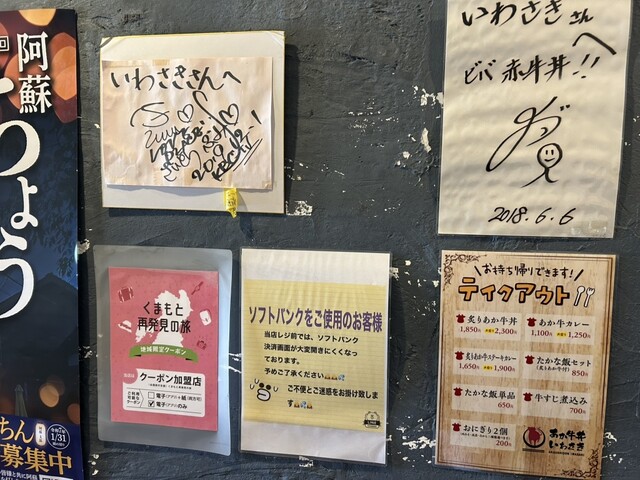 阿蘇
ちょう
ちん
募集中
1/31
いわさきさんへ
いわさきさん
へ
ビバ 赤牛丼!!
2018.6.6
くまもと
再発見の旅
地域限定クーポン
クーポン加盟店
電子(アプリ)+紙(両方可)
電子(アプリ)のみ
ソフトバンクをご使用のお客様
当店レジ前では、ソフトバンク
決済画面が大変開きにくくなっ
ております。
予めご了承ください
ご不便とご迷惑をお掛け致しま
す
お持ち帰りできます!
テイクアウト
炙りあか牛丼
1,850円 2,300円
あか牛カレー
1,100円 1,250円
炙りあか牛ステーキカレー
1,650円 1,900円
たかな飯セット
850円
たかな飯単品
650円
牛すじ煮込み
700円
おにぎり2個
200円
あか牛丼
いわさき